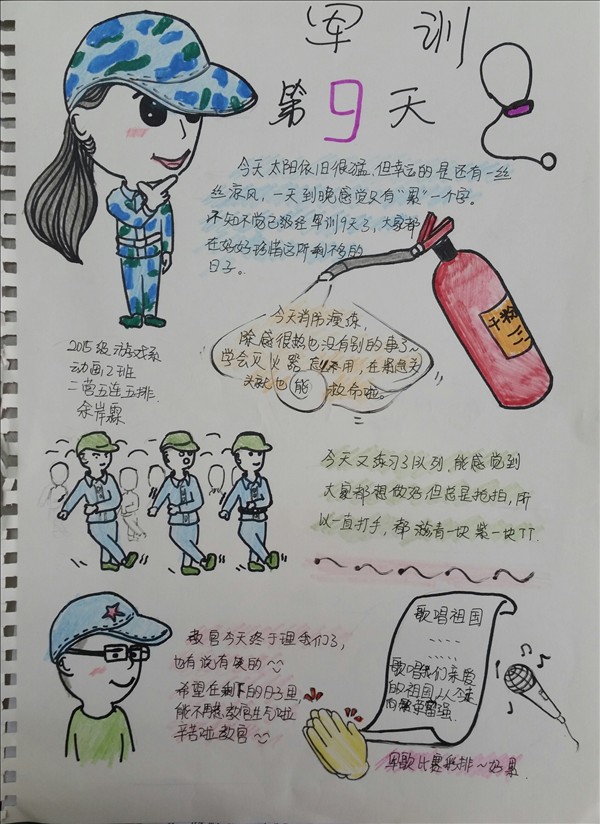 军训
第9天
今天太阳依旧很猛,但幸运的是还有一丝
丝凉风,一天到晚感觉只有"累"一个字。
不知不觉已经军训9天了,大家都
在好好珍惜这所剩不多的
日子。
干粉
今天消防演练,
除感很热也没有别的事了~
学会灭火器怎么用,在紧急关
头就也能救命啦。
2015级游戏系
动画2班
二营五连五排.
余岸霖
今天又练习了队列,能感觉到
大家都想做好但总是抢拍,所
以一直打手,都淤青一块紫一块TT.
教官今天终于理我们了,
也有说有笑的~
希望在剩下的日子里,
能不惹教官生气啦
辛苦啦教官~
歌唱祖国
歌唱我们亲爱
的祖国,从今走
向繁荣富强.
军歌比赛彩排~好累.